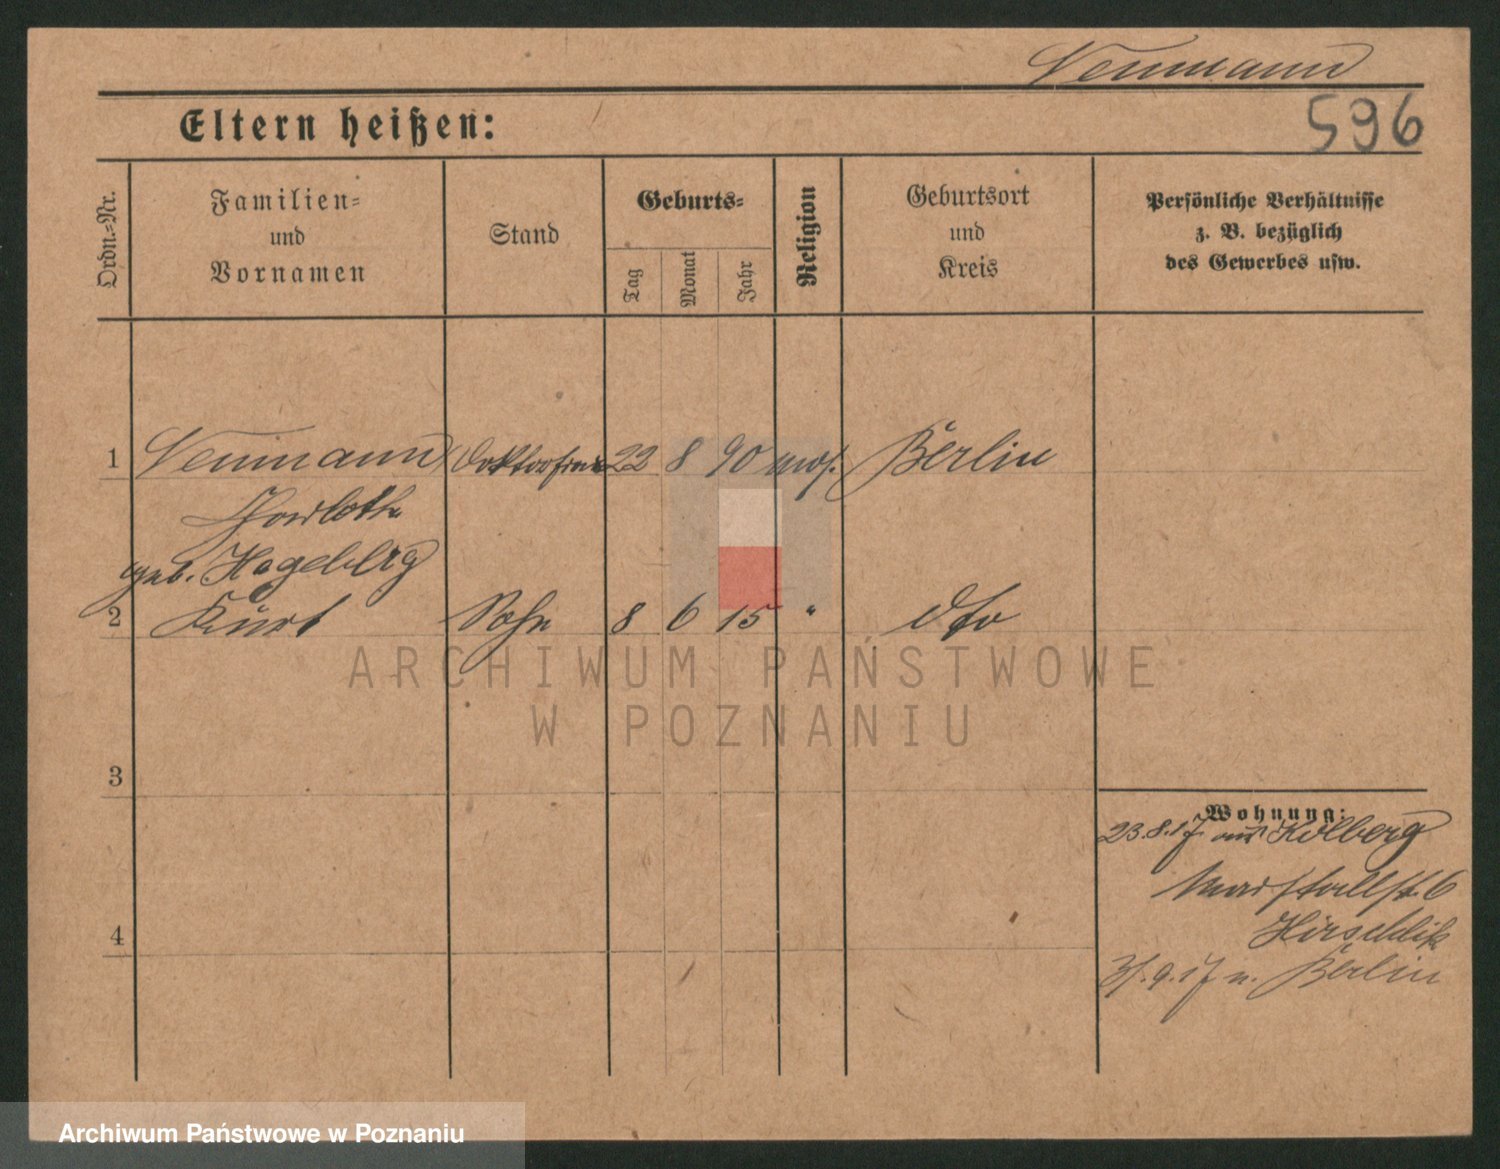 Neumann
596
Eltern heißen:
Ordn.-Nr.
Familien-
und
Vornamen
Stand
Geburts-
Tag
Monat
Jahr
Religion
Geburtsort
und
Kreis
Persönliche Verhältnisse
z. B. bezüglich
des Gewerbes usw.
1 Neumann Doktorsfrau 22 8 90 mos. Berlin
Charlotte
geb. Hageberg
2 Kurt Sohn 8 6 15 " dto
ARCHIWUM PAŃSTWOWE
W POZNANIU
3
Wohnung:
23.8.17 aus Kolberg
Marstallstr. 6
4
9.17 n. Berlin
Archiwum Państwowe w Poznaniu